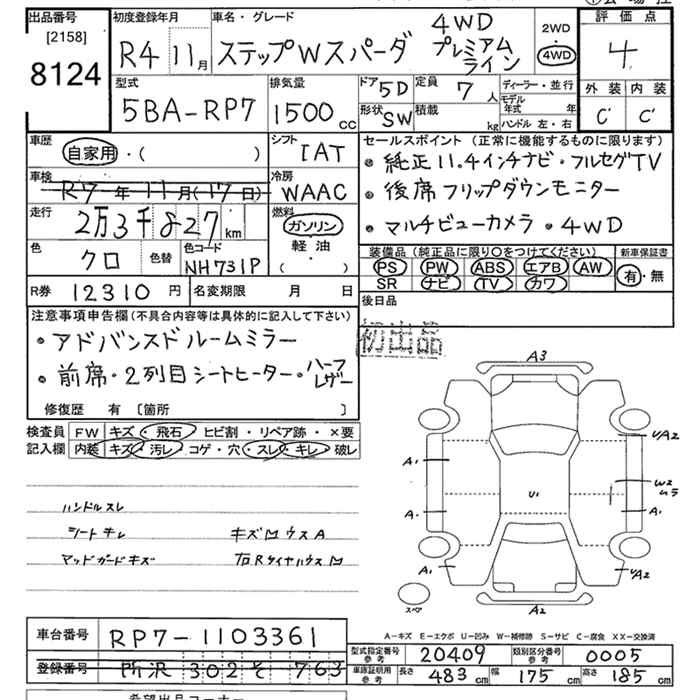 出品番号
[2158]
8124
初度登録年月
R4 11月
車名・グレード
ステップWスパーダ
4WD
プレミアム
ライン
2WD
4WD
評価点
4
外装 内装
C C
型式
5BA-RP7
排気量
1500cc
ドア 5D
形状 SW
定員 7人
積載 kg
ディーラー・並行
モデル年式 年
ハンドル 左・右
車歴
自家用・( )
シフト
IAT
車検
R7年11月(17日)
冷房
WAAC
走行
2万3千827km
燃料
ガソリン
軽油
( )
色
クロ
色替
色コード
NH731P
R券 12310円
名変期限 月 日
セールスポイント (正常に機能するものに限ります)
・純正11.4インチナビ・フルセグTV
・後席フリップダウンモニター
・マルチビューカメラ・4WD
装備品 (純正品に限り〇をつけてください)
PS PW ABS エアB AW
SR ナビ TV カワ
新車保証書
有・無
後日品
初出品
注意事項申告欄(不具合内容等は具体的に記入して下さい)
・アドバンスドルームミラー
・前席・2列目シートヒーター・ハーフレザー
修復歴 有 [箇所 ]
検査員
記入欄
FW キズ・飛石・ヒビ割・リペア跡・×要
内装 キズ・汚レ・コゲ・穴・スレ・キレ・破レ
ハンドルスレ
シートキレ
マッドガードキズ
キズMウスA
右RタイヤハウスM
A3
A1
A1
U1
UA2
W2
ムラ
A1
A1
UA2
A2
スペア
A-キズ E-エクボ U-凹み W-補修跡 S-サビ C-腐食 XX-交換済
車台番号 RP7-1103361
登録番号 所沢 302 そ 763
型式指定番号 参考 20409
類別区分番号 参考 0005
車庫証明用 参考 長さ 483cm 幅 175cm 高さ 185cm
希望出品コーナー